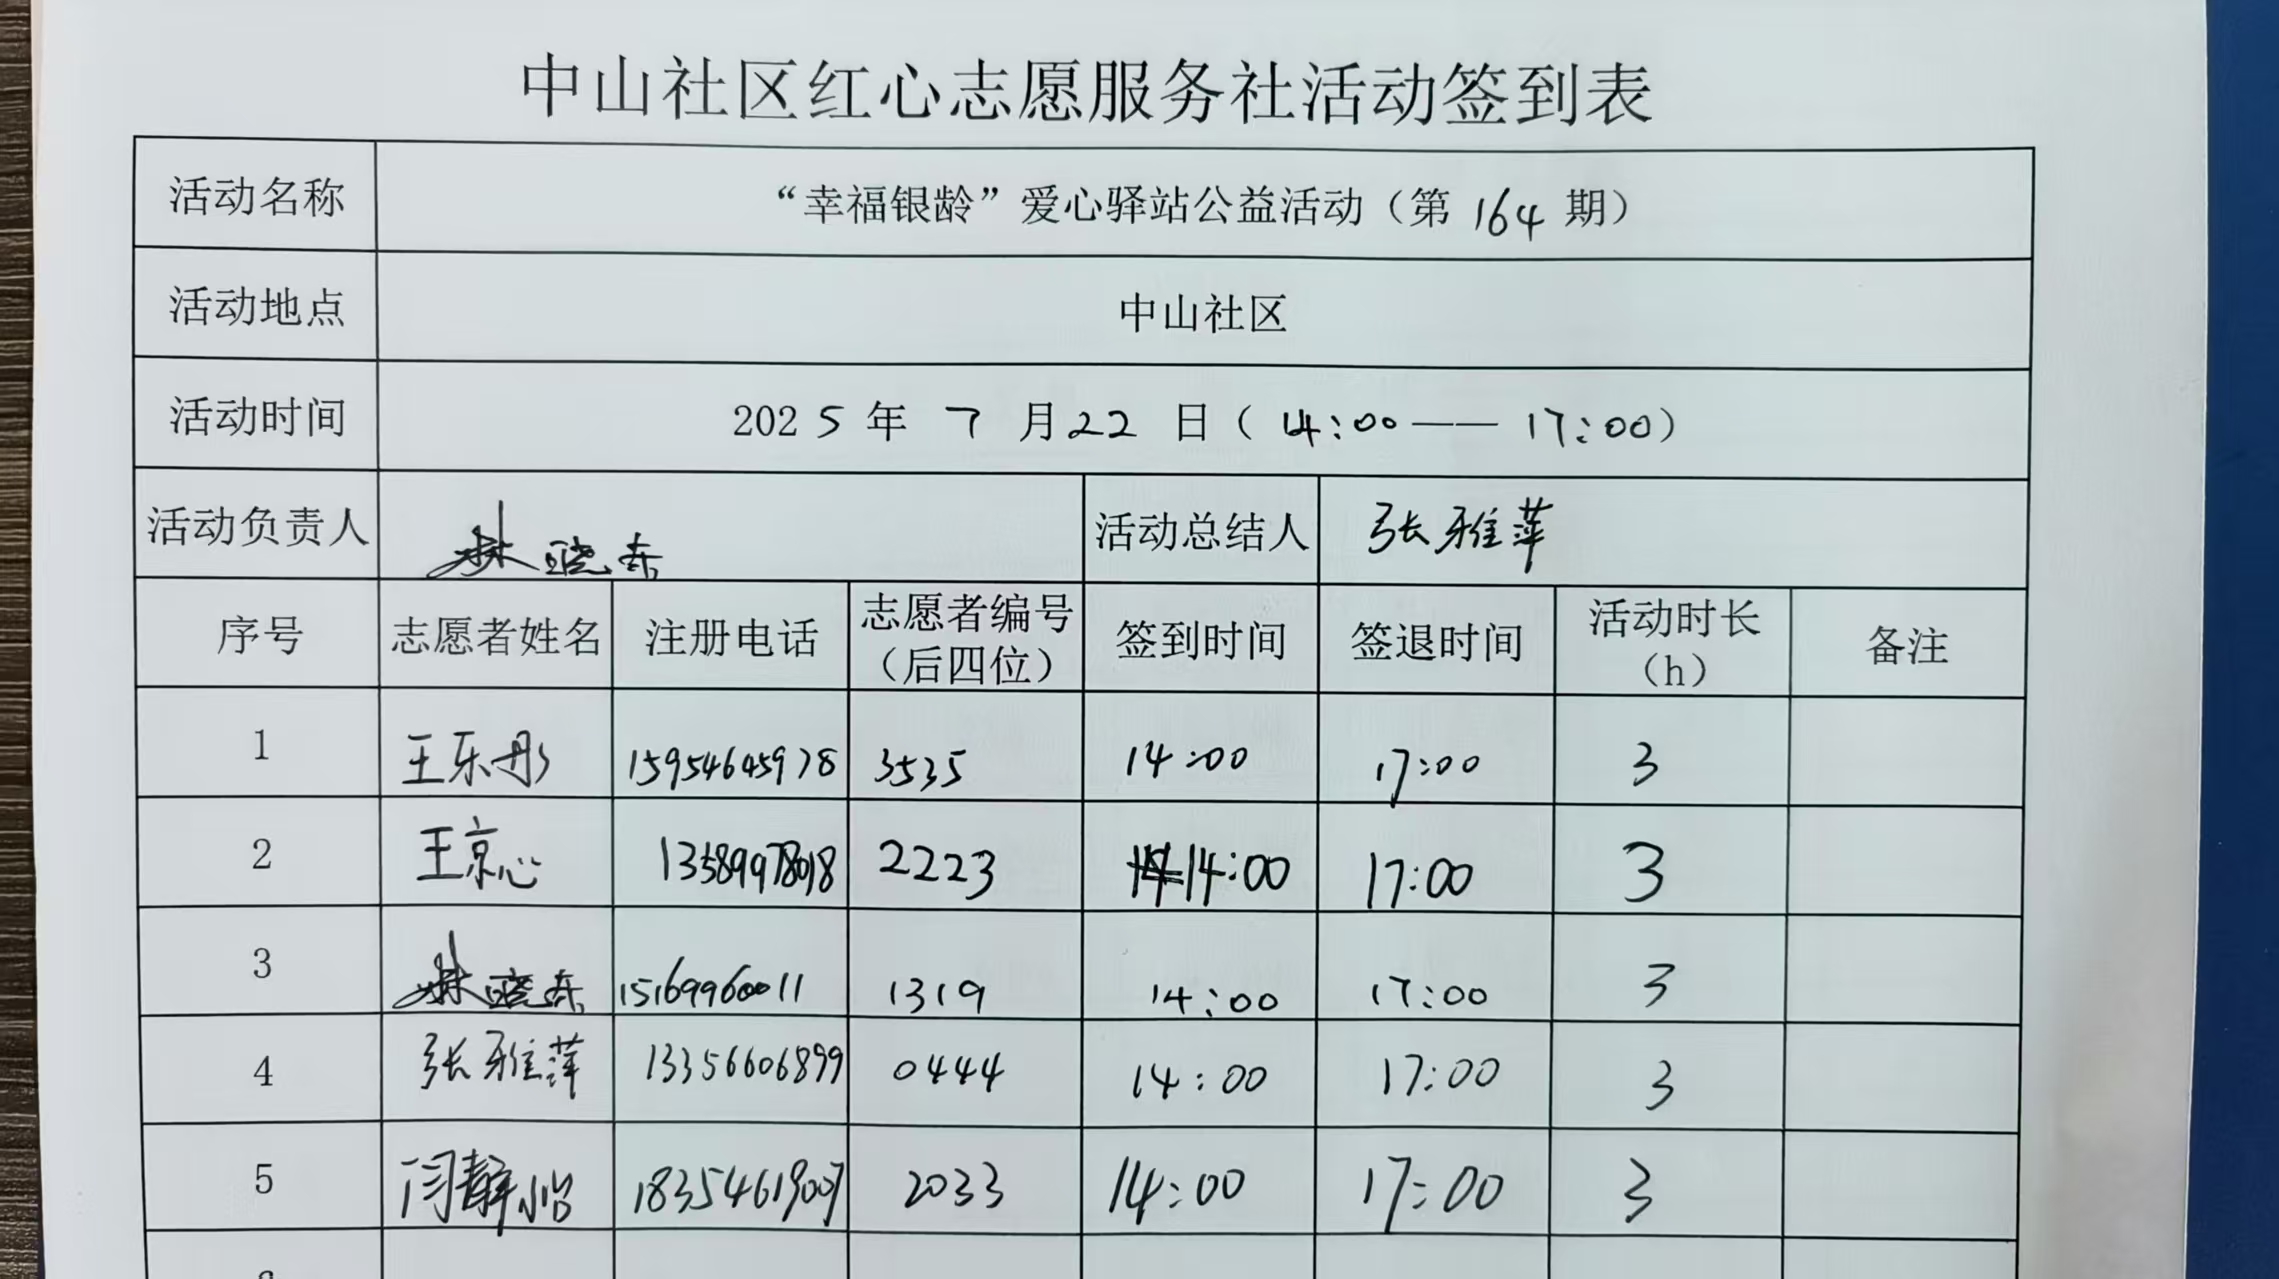 中山社区红心志愿服务社活动签到表
活动名称 “幸福银龄”爱心驿站公益活动（第 164 期）
活动地点 中山社区
活动时间 2025 年 7 月 22 日（14:00——17:00）
活动负责人 林晓东 活动总结人 张雅萍
序号 志愿者姓名 注册电话 志愿者编号（后四位） 签到时间 签退时间 活动时长（h） 备注
1 王乐彤 15954645978 3535 14:00 17:00 3
2 王京心 13589978018 2223 14:00 17:00 3
3 林晓东 15169960011 1319 14:00 17:00 3
4 张雅萍 13356606899 0444 14:00 17:00 3
5 闫静怡 2033 14:00 17:00 3